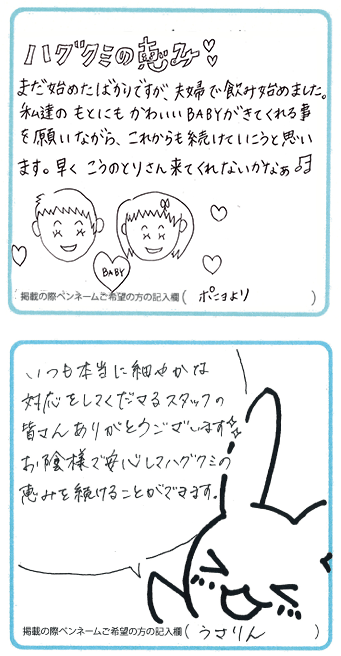 ハグクミの恵み♡♡
まだ始めたばかりですが、夫婦で飲み始めました。
私達のもとにもかわいいBABYがきてくれる事
を願いながら、これからも続けていこうと思い
ます。早くこうのとりさん来てくれないかなぁ♫
BABY
掲載の際ペンネームご希望の方の記入欄( ポニョより )
いつも本当に細やかな
対応をしてくださるスタッフの
皆さんありがとうございます
お陰様で安心してハグクミの
恵みを続けることができます。
掲載の際ペンネームご希望の方の記入欄( うさりん )